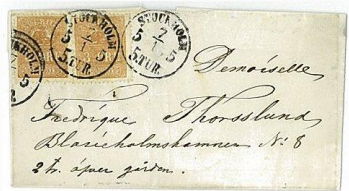 STOCKHOLM
7
1
5
5.TUR.
STOCKHOLM
7
1
5
5.TUR.
STOCKHOLM
5
Demoiselle
Fredrique Thorsslund
Blasieholmshamnen No 8
2 tr. öfver gården.